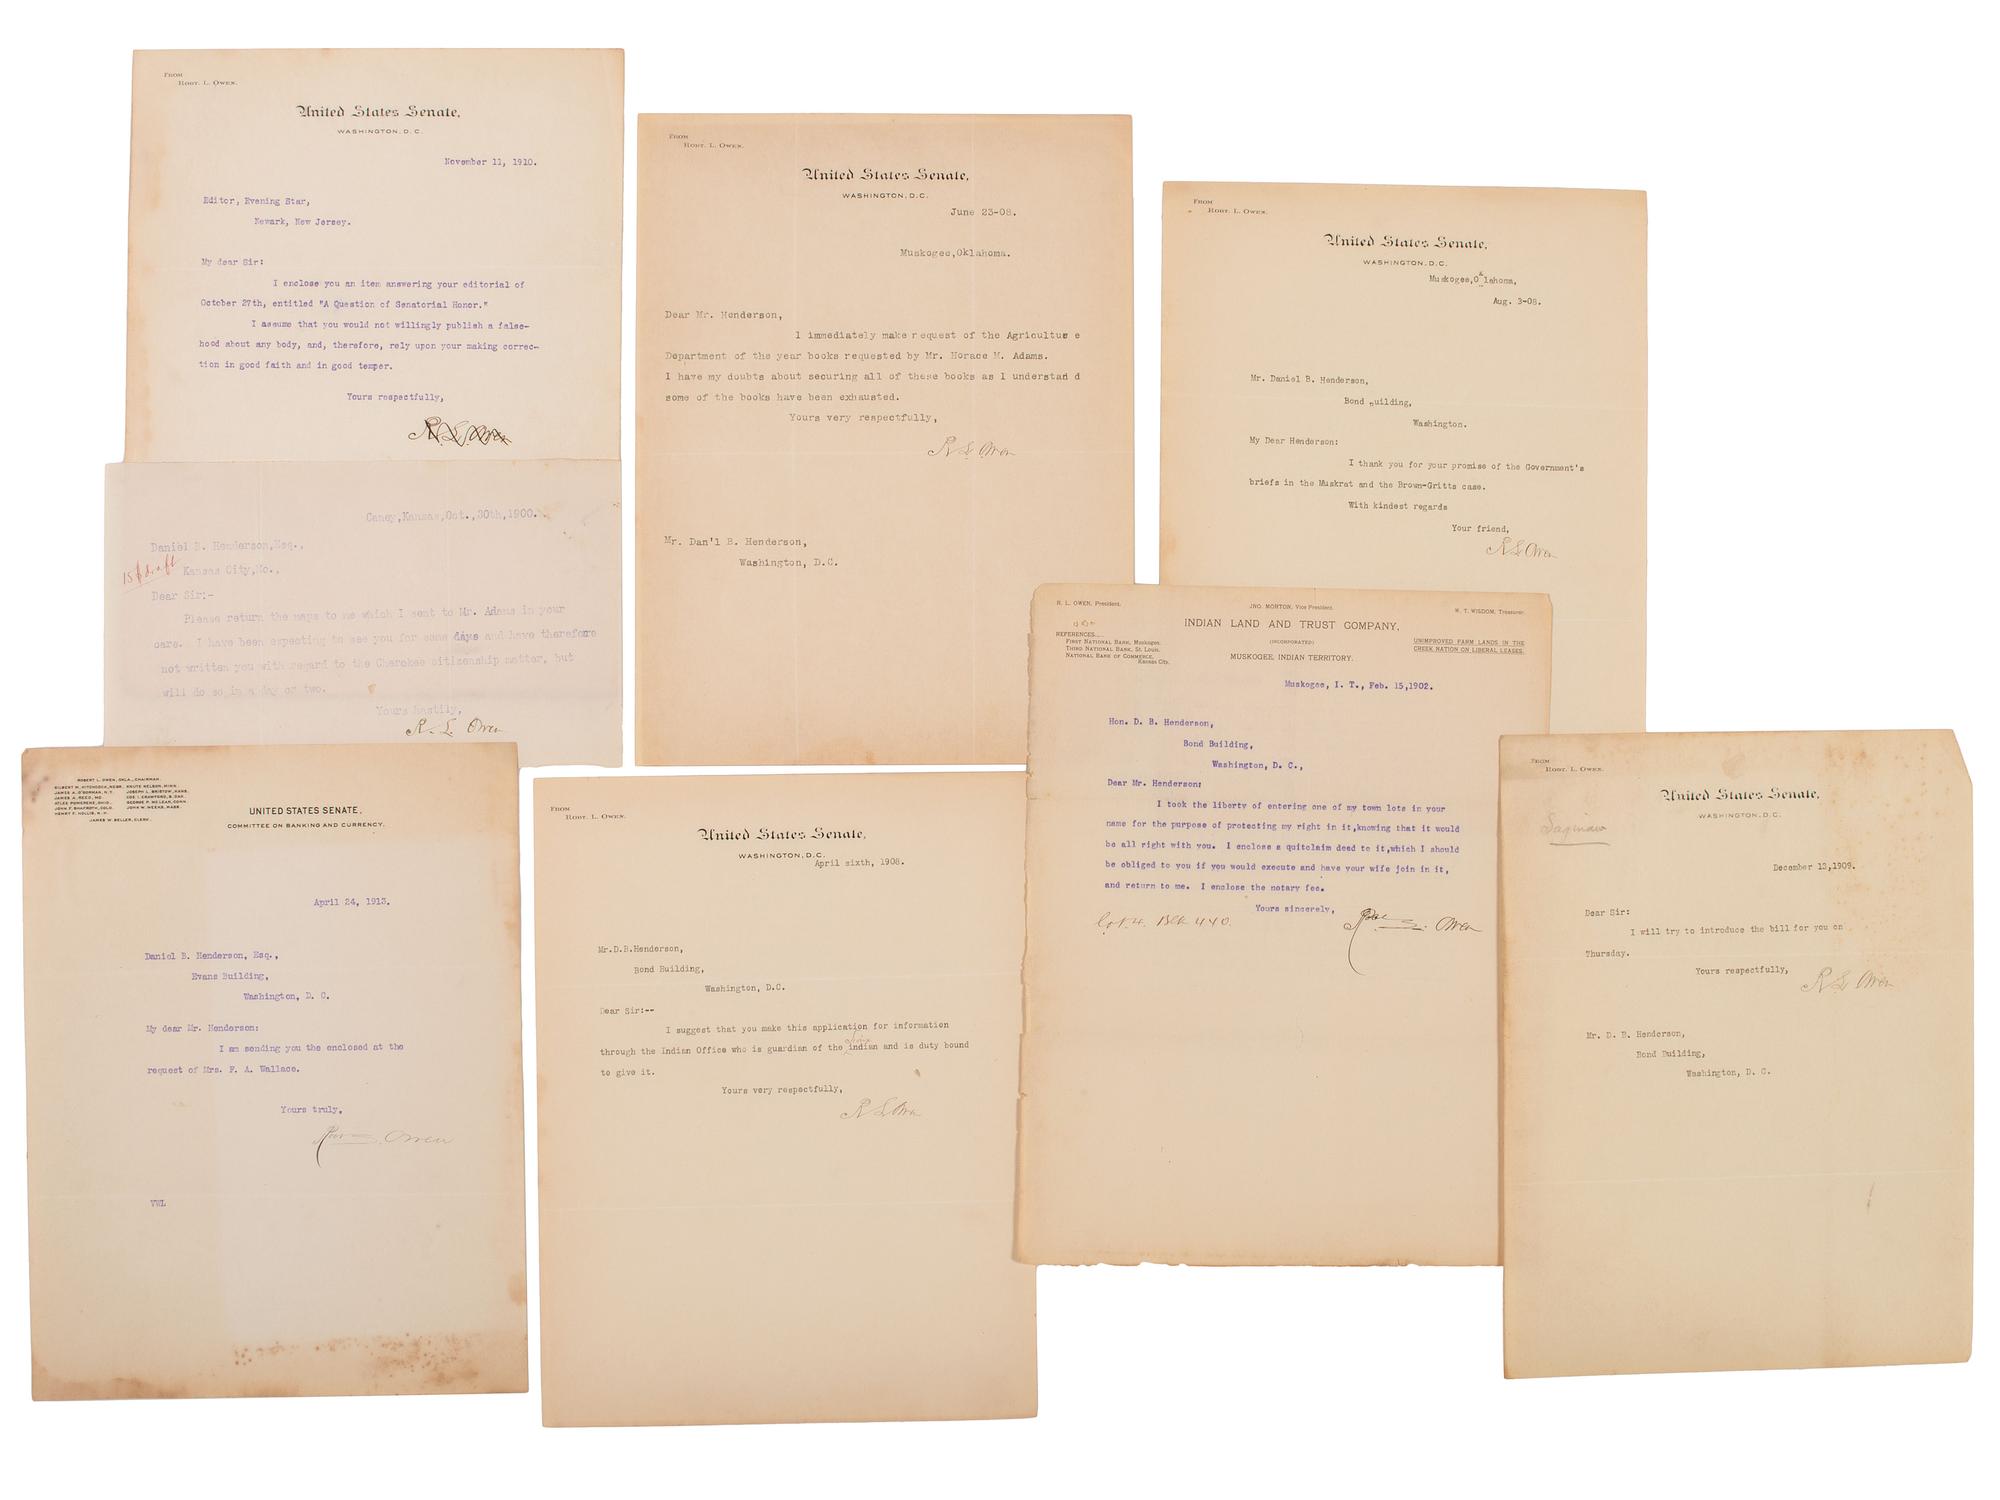 FROM
ROBT. L. OWEN.
United States Senate,
WASHINGTON, D. C.
November 11, 1910.
Editor, Evening Star,
Newark, New Jersey.
My dear Sir:
I enclose you an item answering your editorial of
October 27th, entitled "A Question of Senatorial Honor."
I assume that you would not willingly publish a false-
hood about any body, and, therefore, rely upon your making correc-
tion in good faith and in good temper.
Yours respectfully,
R. L. Owen
Caney,Kansas,Oct.,30th,1900.
Daniel B. Henderson,Esq.,
Kansas City,Mo.,
Dear Sir:-
Please return the maps to me which I sent to Mr. Adams in your
care. I have been expecting to see you for some days and have therefore
not written you with regard to the Cherokee citizenship matter, but
will do so in a day or two.
Yours hastily,
R. L. Owen
FROM
ROBT. L. OWEN.
United States Senate,
WASHINGTON, D. C.
June 23-08.
Muskogee,Oklahoma.
Dear Mr. Henderson,
I immediately make request of the Agricultur e
Department of the year books requested by Mr. Horace M. Adams.
I have my doubts about securing all of these books as I understan d
some of the books have been exhausted.
Yours very respectfully,
R L Owen
Mr. Dan'l B. Henderson,
Washington, D.C.
FROM
ROBT. L. OWEN.
United States Senate,
WASHINGTON, D. C.
Muskogee,Oklahoma,
Aug. 3-08.
Mr. Daniel B. Henderson,
Bond Building,
Washington.
My Dear Henderson:
I thank you for your promise of the Government's
briefs in the Muskrat and the Brown-Gritts case.
With kindest regards
Your friend,
R L Owen
R. L. OWEN, President.
JNO. MORTON, Vice President.
W. T. WISDOM, Treasurer.
INDIAN LAND AND TRUST COMPANY,
(INCORPORATED)
MUSKOGEE, INDIAN TERRITORY.
REFERENCES....
FIRST NATIONAL BANK, Muskogee.
THIRD NATIONAL BANK, St. Louis.
NATIONAL BANK OF COMMERCE,
Kansas City.
UNIMPROVED FARM LANDS IN THE
CREEK NATION ON LIBERAL LEASES.
Muskogee, I. T., Feb. 15,1902.
Hon. D. B. Henderson,
Bond Building,
Washington, D. C.,
Dear Mr. Henderson:
I took the liberty of entering one of my town lots in your
name for the purpose of protecting my right in it,knowing that it would
be all right with you. I enclose a quitclaim deed to it,which I should
be obliged to you if you would execute and have your wife join in it,
and return to me. I enclose the notary fee.
Yours sincerely,
Lot 4. Blk 440.
Owen
ROBERT L. OWEN, OKLA., CHAIRMAN.
GILBERT M. HITCHCOCK, NEBR. KNUTE NELSON, MINN.
JAMES A. O'GORMAN, N.Y. JOSEPH L. BRISTOW, KANS.
JAMES A. REED, MO. COE I. CRAWFORD, S. DAK.
ATLEE POMERENE, OHIO. GEORGE P. MCLEAN, CONN.
JOHN F. SHAFROTH, COLO. JOHN W. WEEKS, MASS.
HENRY F. HOLLIS, N. H.
JAMES W. BELLER, CLERK.
UNITED STATES SENATE,
COMMITTEE ON BANKING AND CURRENCY.
April 24, 1913.
Daniel B. Henderson, Esq.,
Evans Building,
Washington, D. C.
My dear Mr. Henderson:
I am sending you the enclosed at the
request of Mrs. F. A. Wallace.
Yours truly,
Owen
VWL
FROM
ROBT. L. OWEN.
United States Senate,
WASHINGTON, D. C.
April sixth, 1908.
Mr.D.B.Henderson,
Bond Building,
Washington, D.C.
Dear Sir:--
I suggest that you make this application for information
through the Indian Office who is guardian of the indian and is duty bound
to give it.
Yours very respectfully,
R L Owen
FROM
ROBT. L. OWEN.
United States Senate,
WASHINGTON, D. C.
Saginaw
December 13,1909.
Dear Sir:
I will try to introduce the bill for you on
Thursday.
Yours respectfully,
R L Owen
Mr. D. B. Henderson,
Bond Building,
Washington, D. C.